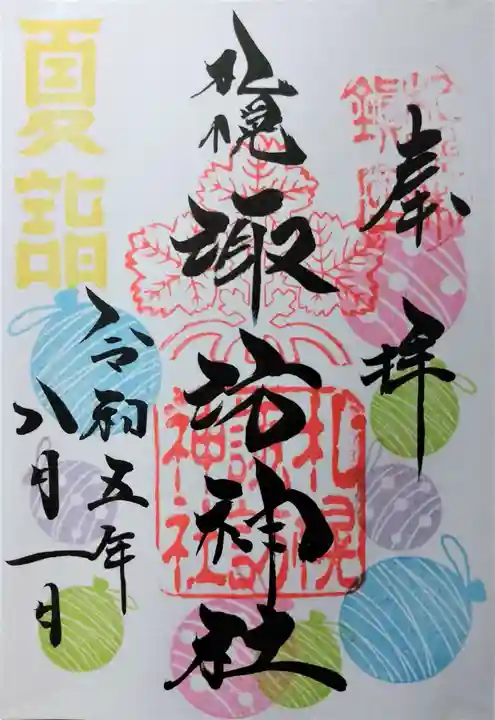 奉拝
札幌
諏訪神社
札幌
諏訪
神社
夏詣
令和五年
八月一日